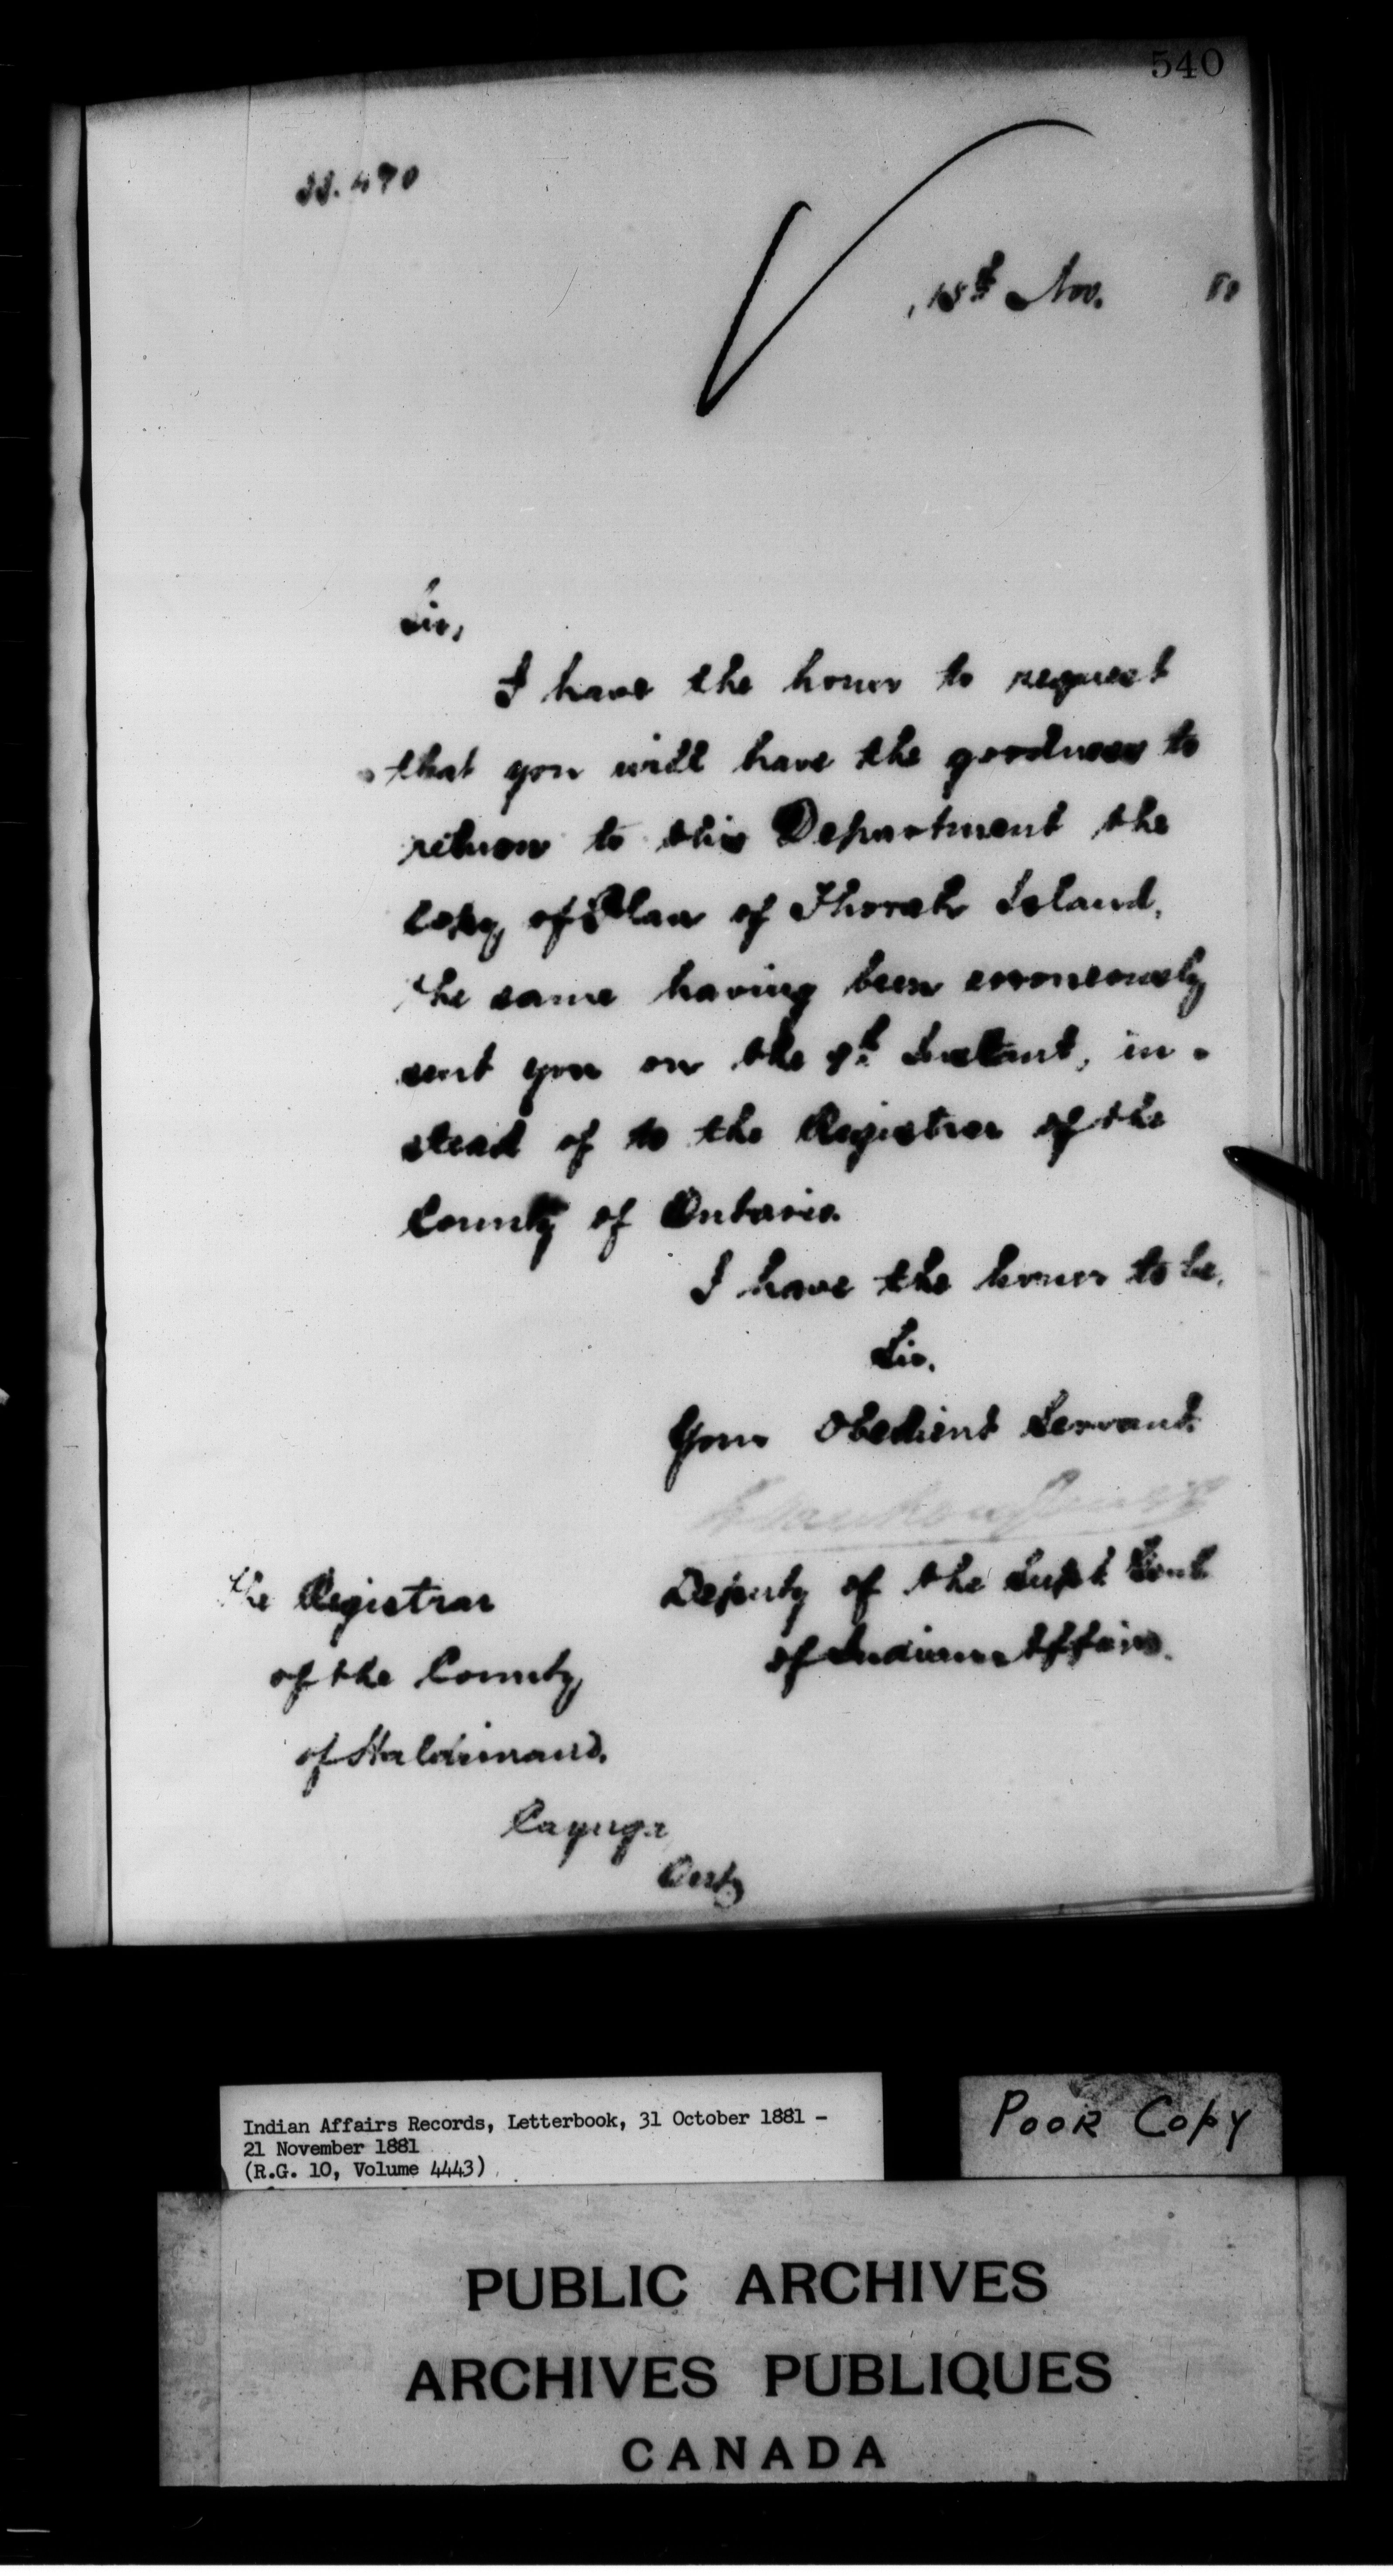 540
33.490
18th Nov.
Sir,
I have the honor to request
that you will have the goodness to
return to this Department the
Copy of Plan of Thorah Island,
the same having been erroneously
sent you on the 9th Instant, in-
stead of to the Registrar of the
County of Ontario.
I have the honor to be,
Sir,
Your Obedient Servant.
Deputy of the Supt Genl
of Indian Affairs.
The Registrar
of the County
of Haldimand.
Cayuga
Ont
Indian Affairs Records, Letterbook, 31 October 1881 -
21 November 1881
(R.G. 10, Volume 4443)
POOR COPY
PUBLIC ARCHIVES
ARCHIVES PUBLIQUES
CANADA